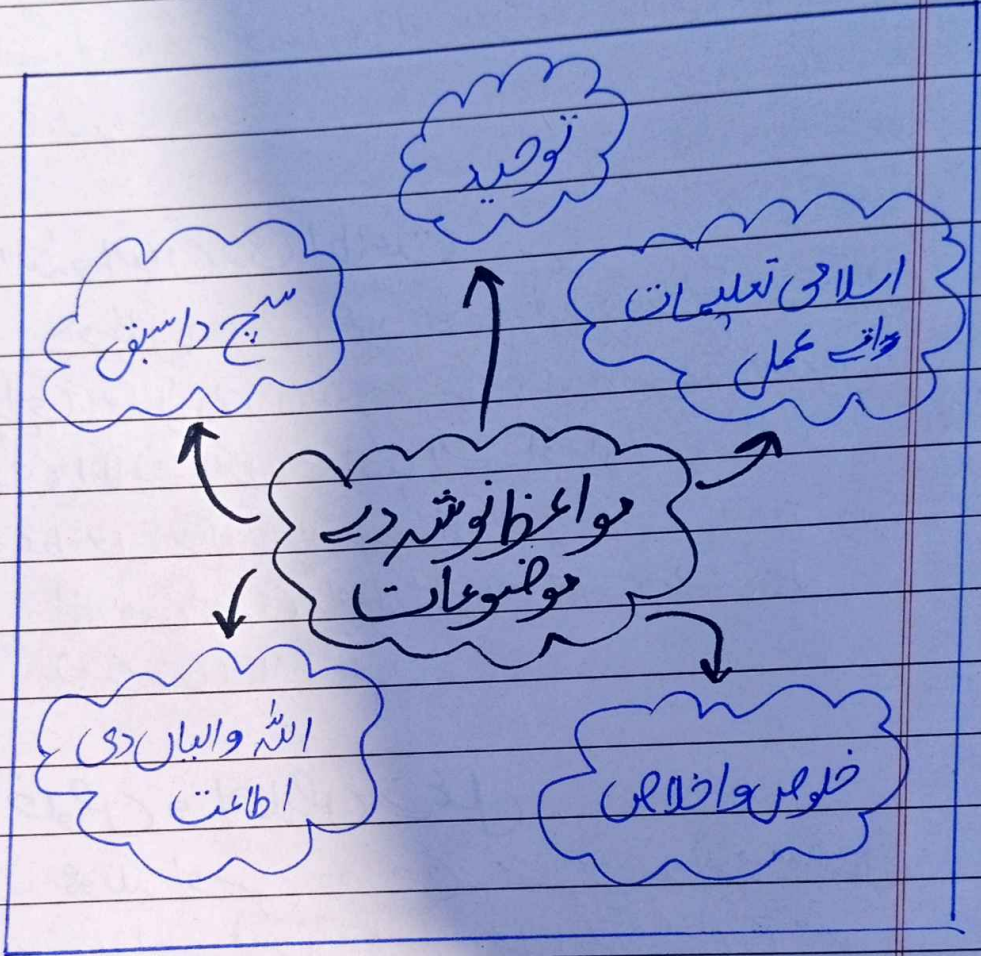 توحید
اسلامی تعلیمات
واتے عمل
سچ دا سبق
مواعظ نوشہ دے
موضوعات
اللہ والیاں دی
اطاعت
خلوص و اخلاص